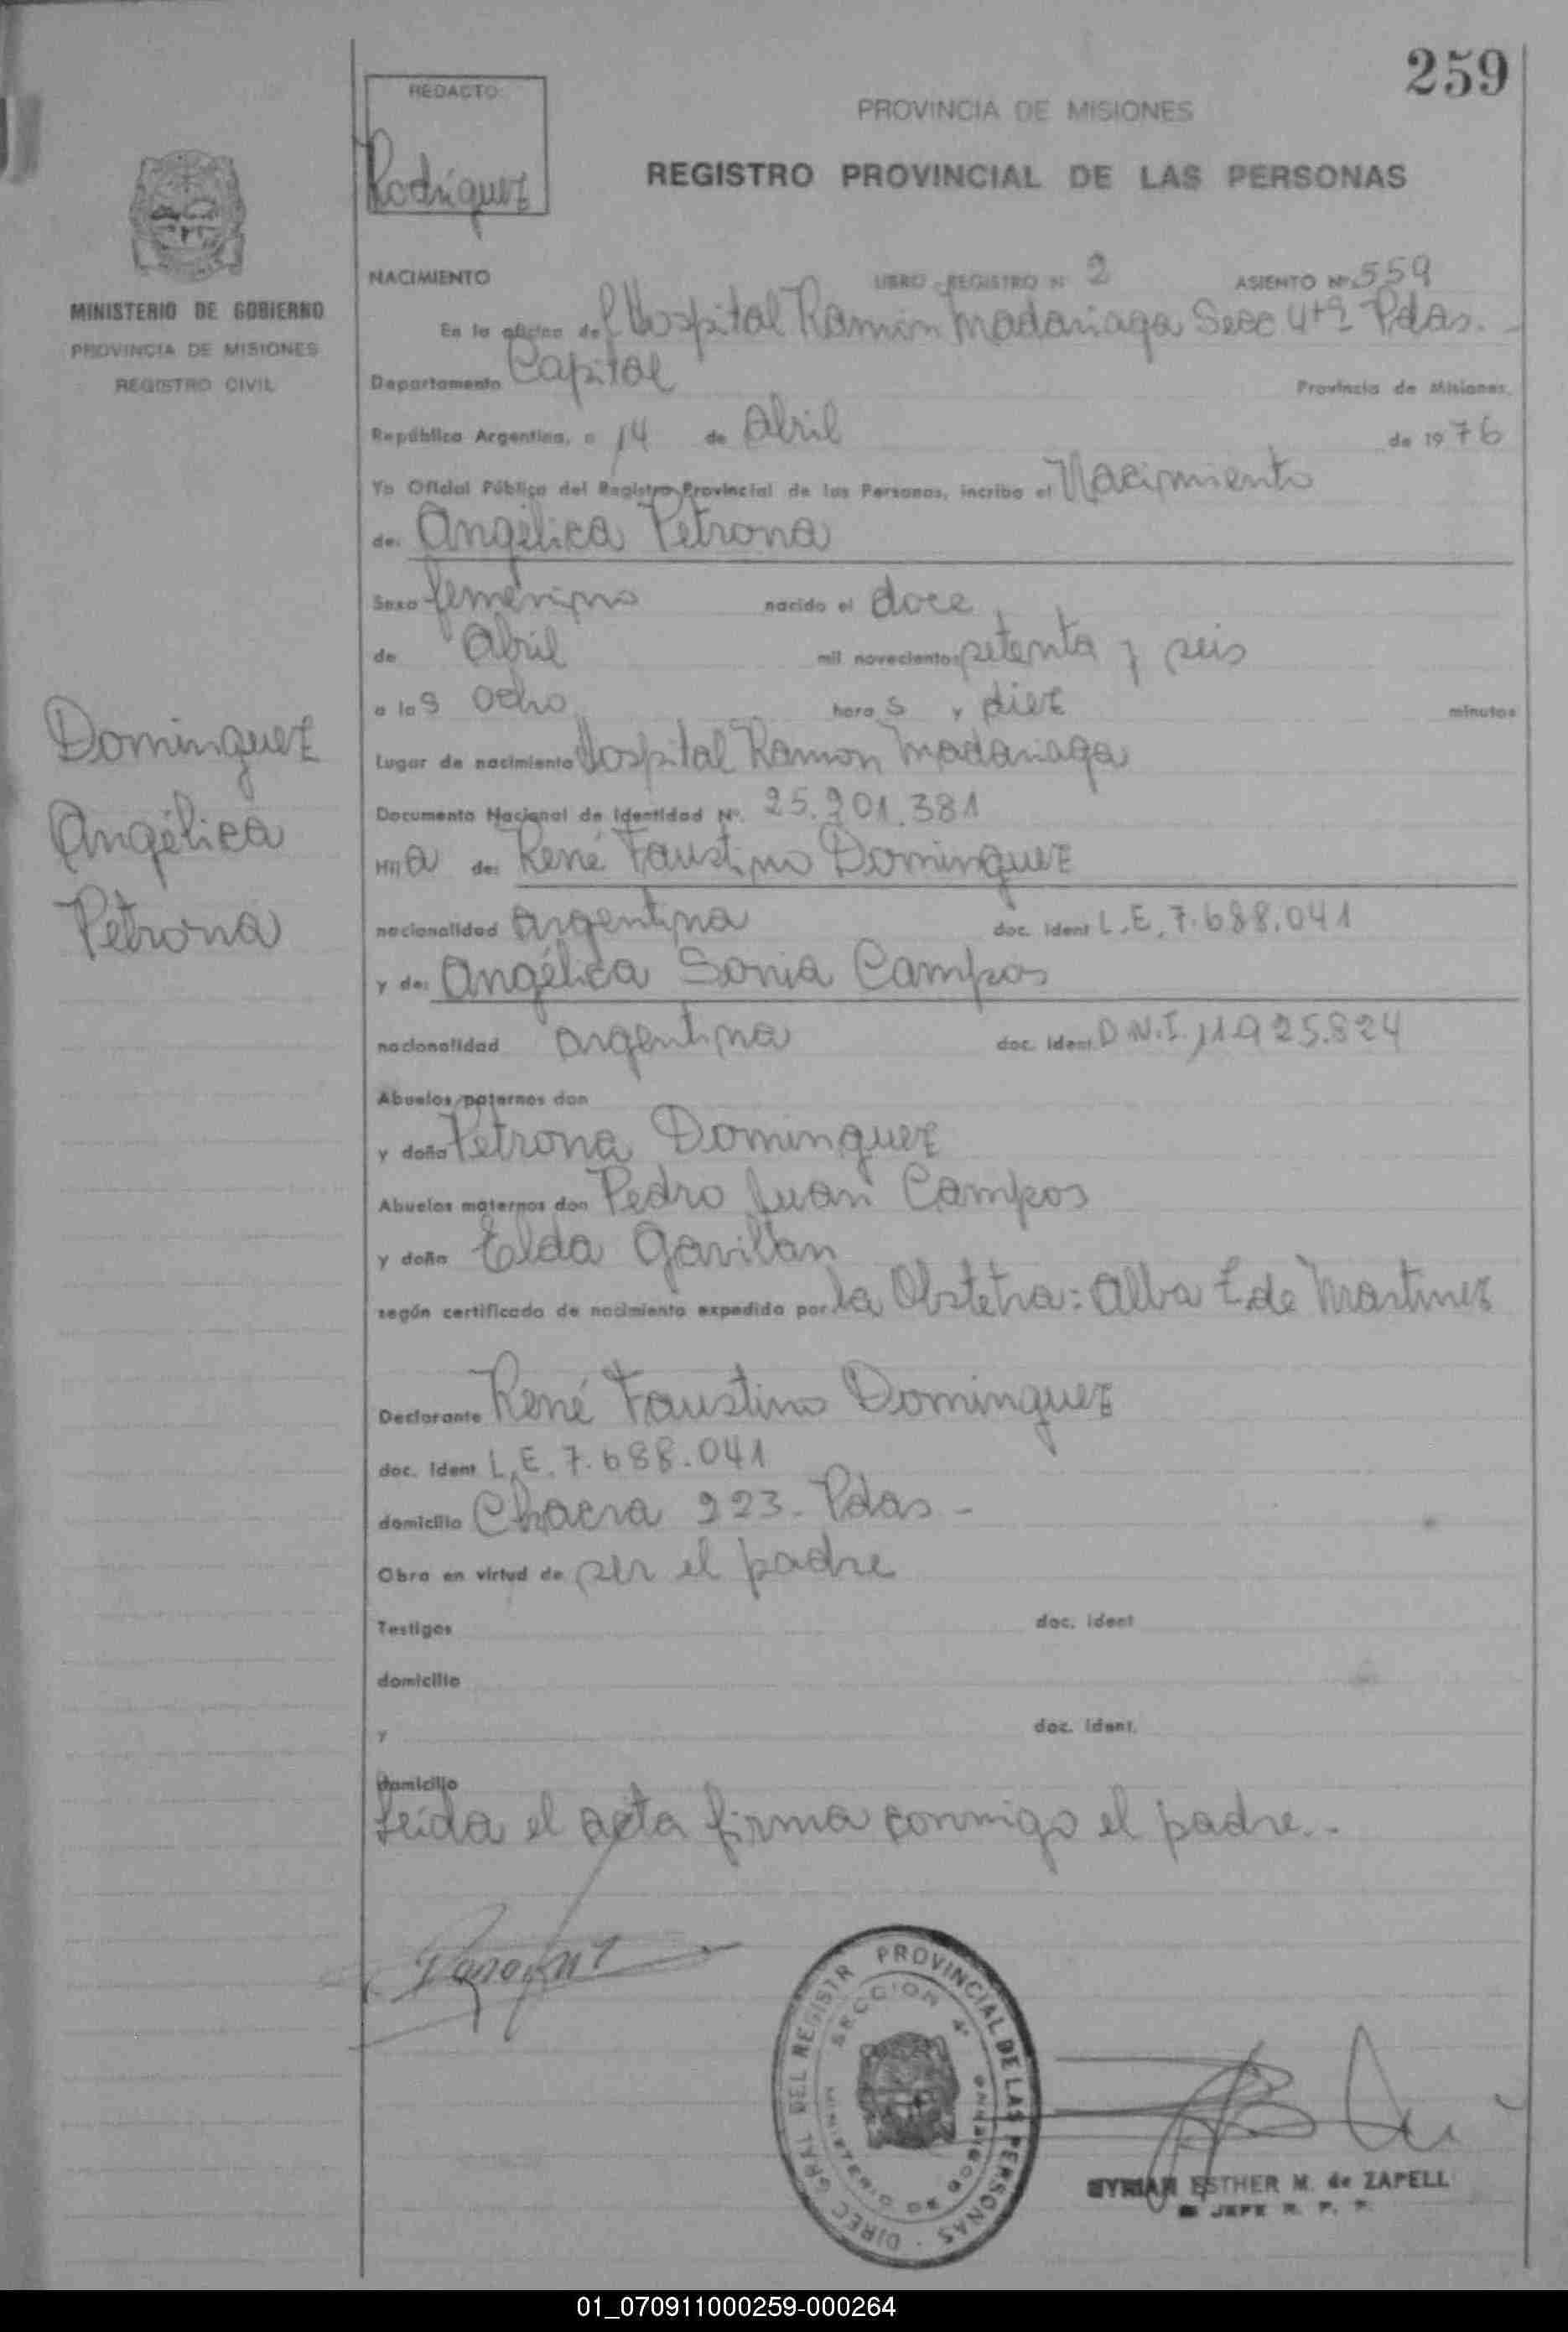 259
REDACTO:
Rodríguez
PROVINCIA DE MISIONES
REGISTRO PROVINCIAL DE LAS PERSONAS
MINISTERIO DE GOBIERNO
PROVINCIA DE MISIONES
REGISTRO CIVIL
NACIMIENTO LIBRO - REGISTRO Nº 2 ASIENTO Nº 559
En la oficina del Hospital Ramón Madariaga Secc 4ta Pdas. -
Departamento Capital Provincia de Misiones,
República Argentina, a 14 de Abril de 1976
Yo Oficial Público del Registro Provincial de las Personas, incribo el Nacimiento
de: Angélica Petrona
Sexo femenino nacido el doce
de Abril mil novecientos setenta y seis
a las Ocho horas y diez minutos
Lugar de nacimiento Hospital Ramon Madariaga
Documento Nacional de Identidad Nº. 25.201.381
Hija de: René Faustino Dominguez
nacionalidad argentina doc. ident L.E. 7.688.041
y de: Angélica Sonia Campos
nacionalidad argentina doc. ident. D.N.I. 11.925.824
Abuelos paternos don
y doña Petrona Dominguez
Abuelos maternos don Pedro Juan Campos
y doña Elda Gavilan
según certificado de nacimiento expedido por la Obstetra: Alba de Martinez
Declarante René Faustino Dominguez
doc. ident L.E. 7.688.041
domicilio Chacra 223 - Pdas -
Obra en virtud de ser el padre
Testigos doc. ident
domicilio
y doc. ident.
domicilio
Leída el acta firma conmigo el padre. -
Dominguez
Angélica
Petrona
DIREC. GRAL. DEL REGISTR PROVINCIAL DE LAS PERSONAS
SECCION 4ª
MINISTERIO DE GOBIERNO
MYRIAN ESTHER M. de ZAPELL
JEFE R. P. P.
01_070911000259-000264